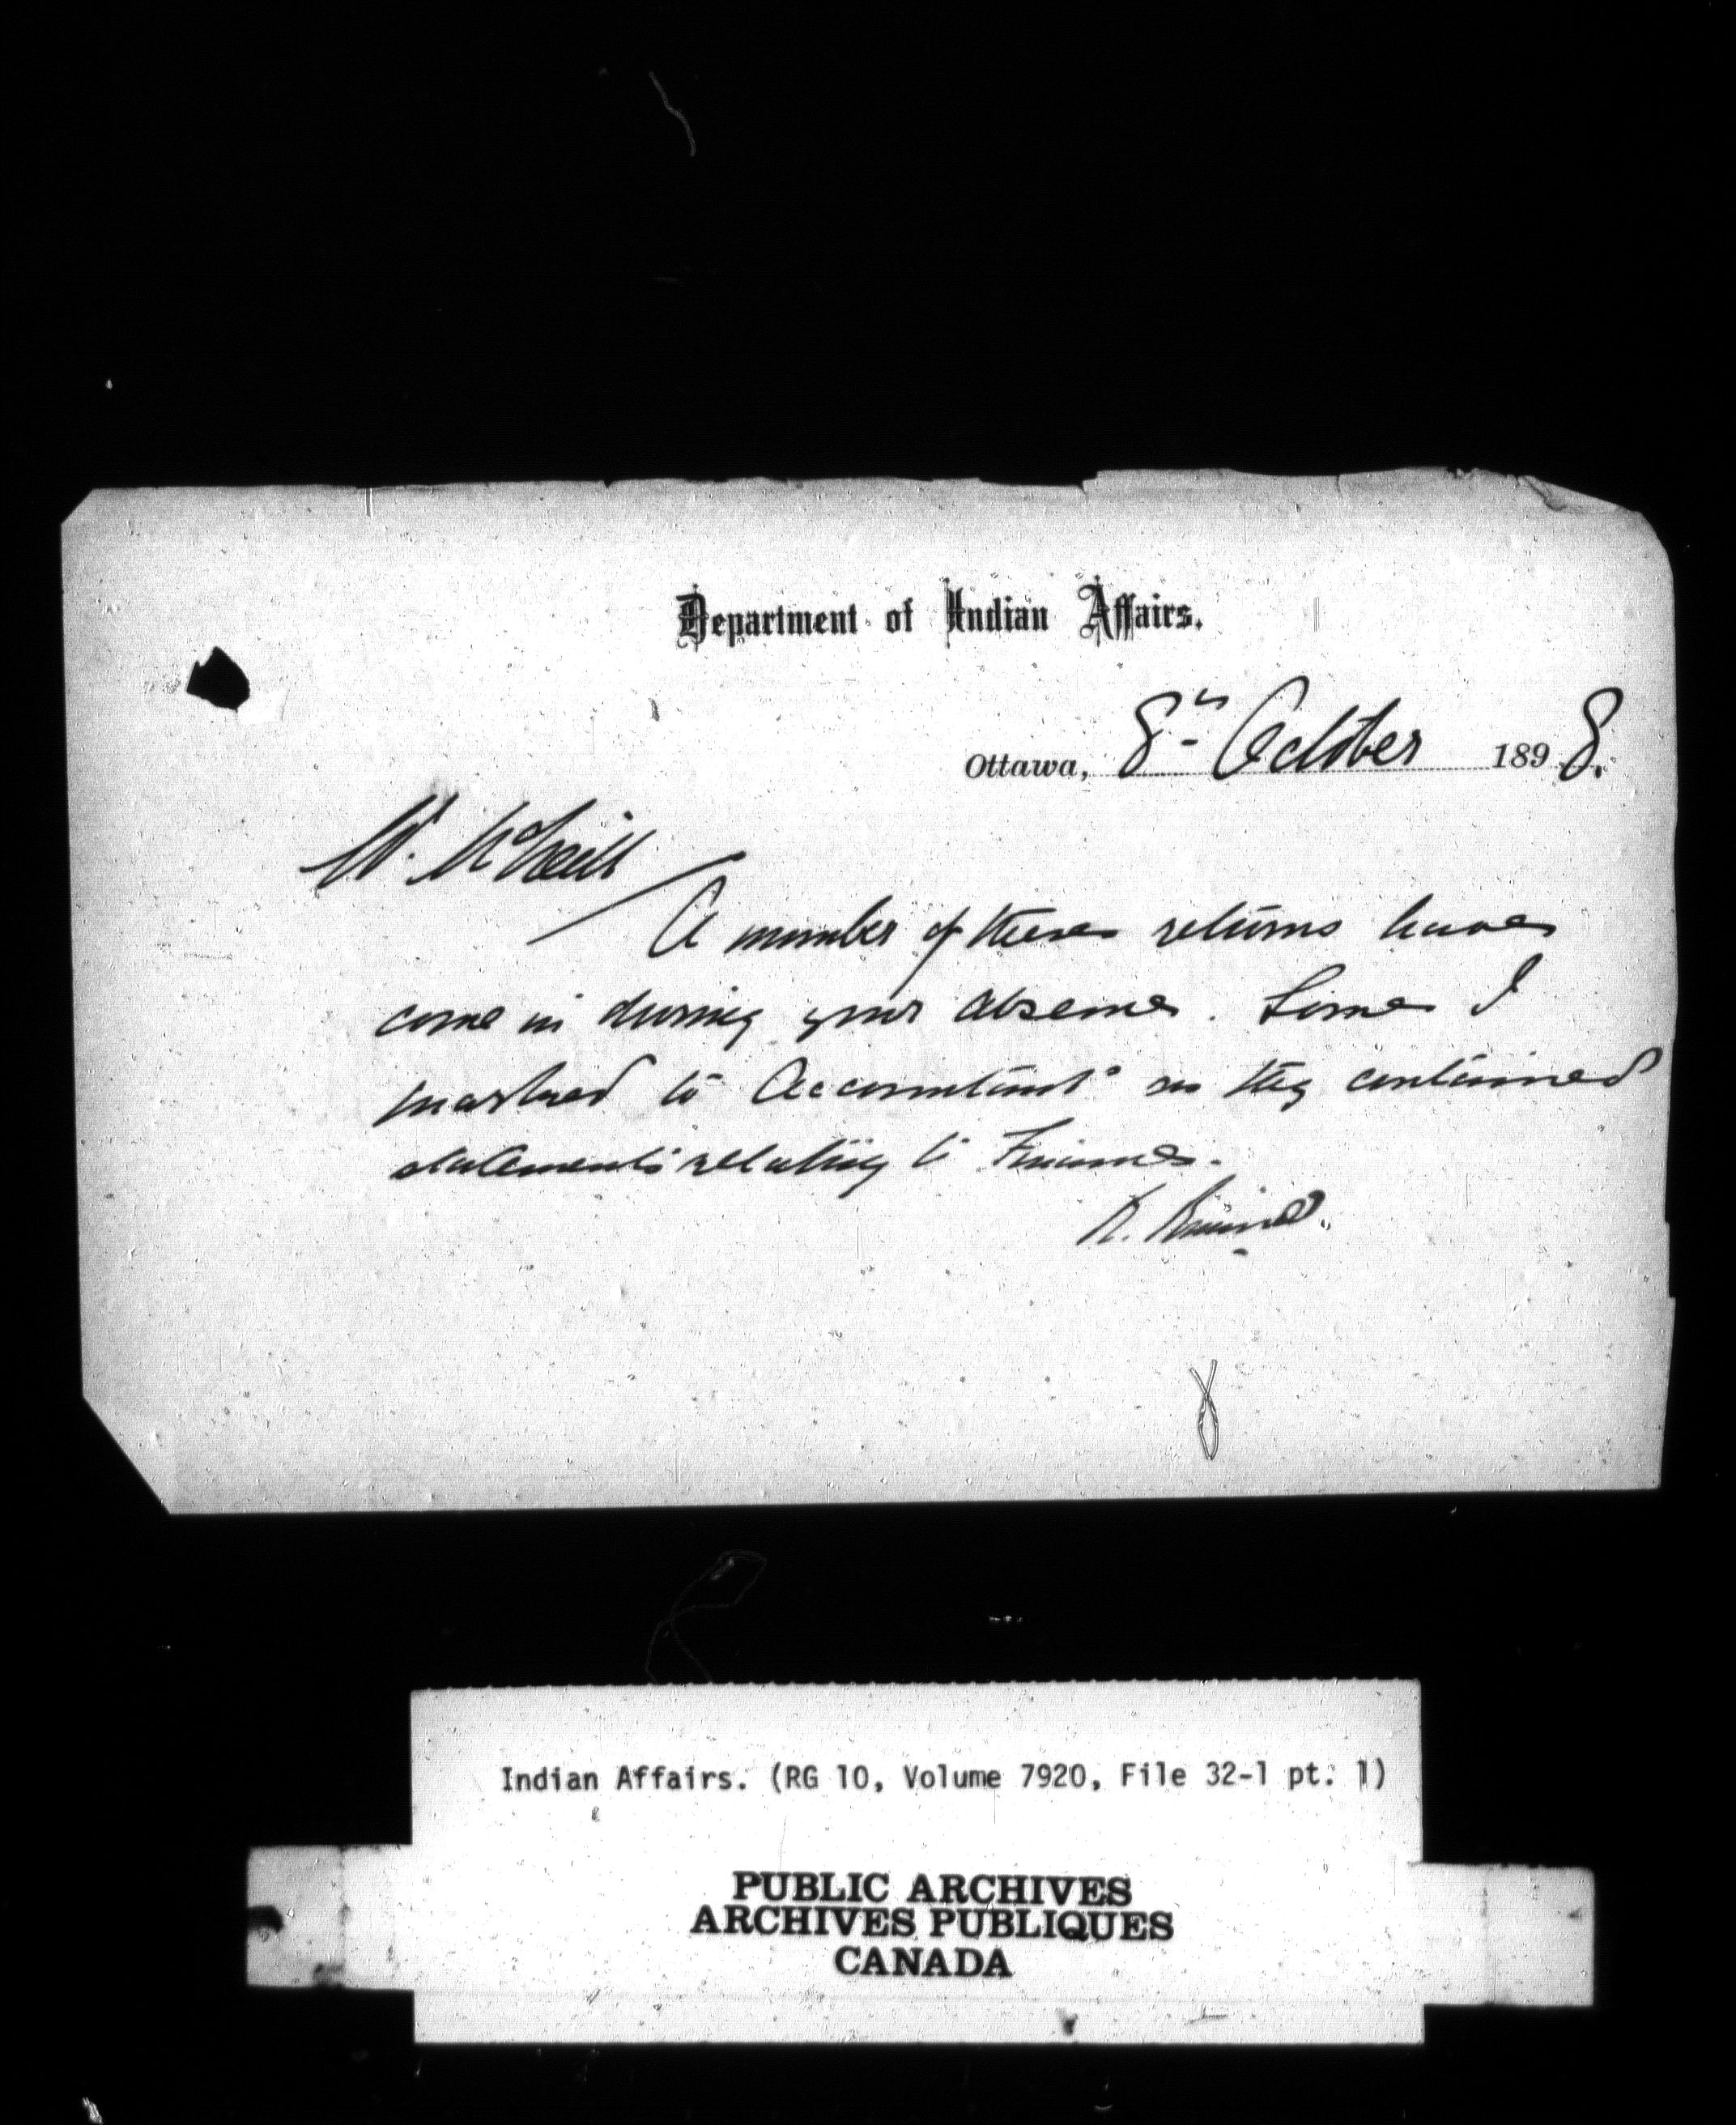 Department of Indian Affairs.
Ottawa, 8th October 1898.
Mr. McNeill
A number of these returns have
come in during your absence. Some I
marked to Accountant as they contained
statements relating to Finances.
R.
Indian Affairs. (RG 10, Volume 7920, File 32-1 pt. 1)
PUBLIC ARCHIVES
ARCHIVES PUBLIQUES
CANADA